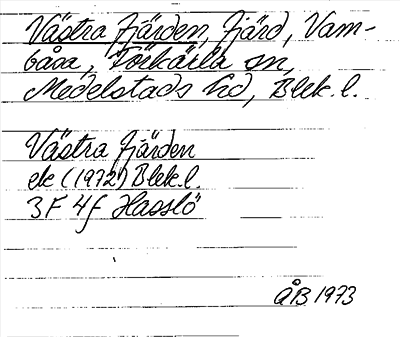 Västra fjärden, fjärd, Vam-
båsa, Förkärla sn,
Medelstads hd, Blek. l.
Västra fjärden
ek (1972) Blek. l.
3F 4f Hasslö
ÅB 1973